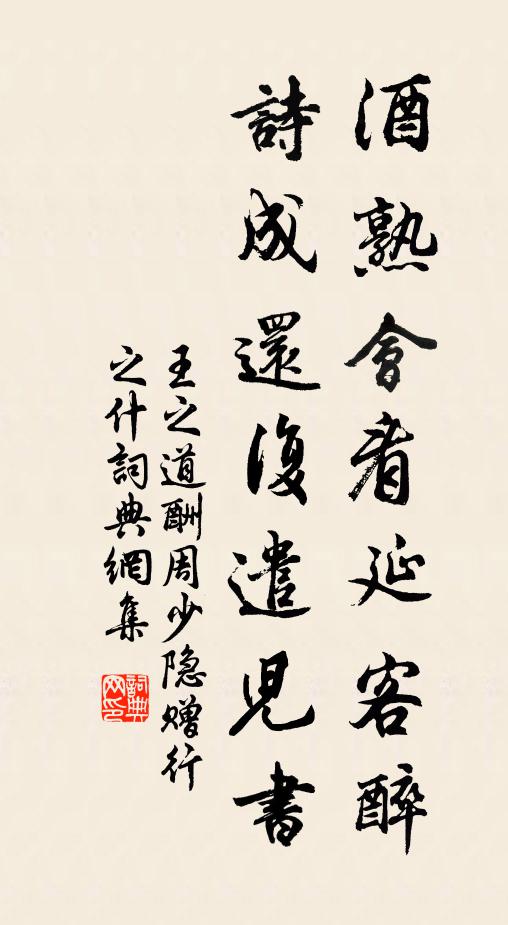 酒熟會看延客醉
詩成還復遣兒書
王之道酬周少隐赠行
之什詞典網集
詞典网印